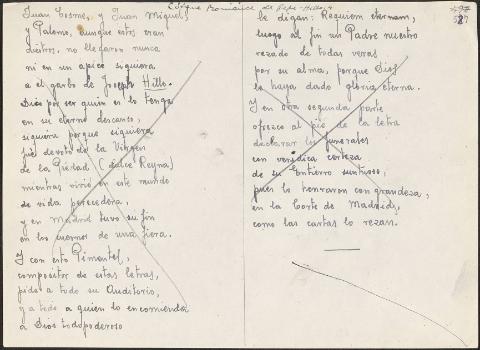 Sigue Romance de Pepe-Hillo
Juan Cosme, y Juan Miguel,
y Palomo, aunque estos eran
diestros, no llegaron nunca
ni en un ápice siquiera
a el garbo de Joseph Hillo.
Dios por ser quien es lo tenga
en su eterno descanso,
siquiera porque siquiera
fue devoto de la Virgen
de la Piedad (dulce Reyna)
mientras vivió en este mundo
de vida perecedera,
y en Madrid tuvo su fin
en los cuernos de una fiera.
Y con esto Pimentel,
compositor de estas letras,
pide a todo su Auditorio,
y a todo a quien lo encomienda
a Dios todopoderoso
le digan: Requiem eternam,
luego al fin un Padre nuestro
rezado de todas veras
por su alma, porque Dios
la haya dado gloria eterna.
Y en otra segunda parte
ofrezco al pie de la letra
declarar los funerales
con verídica certeza
de su Entierro suntuoso,
pues lo honraron con grandeza,
en la Corte de Madrid,
como las cartas lo rezan.